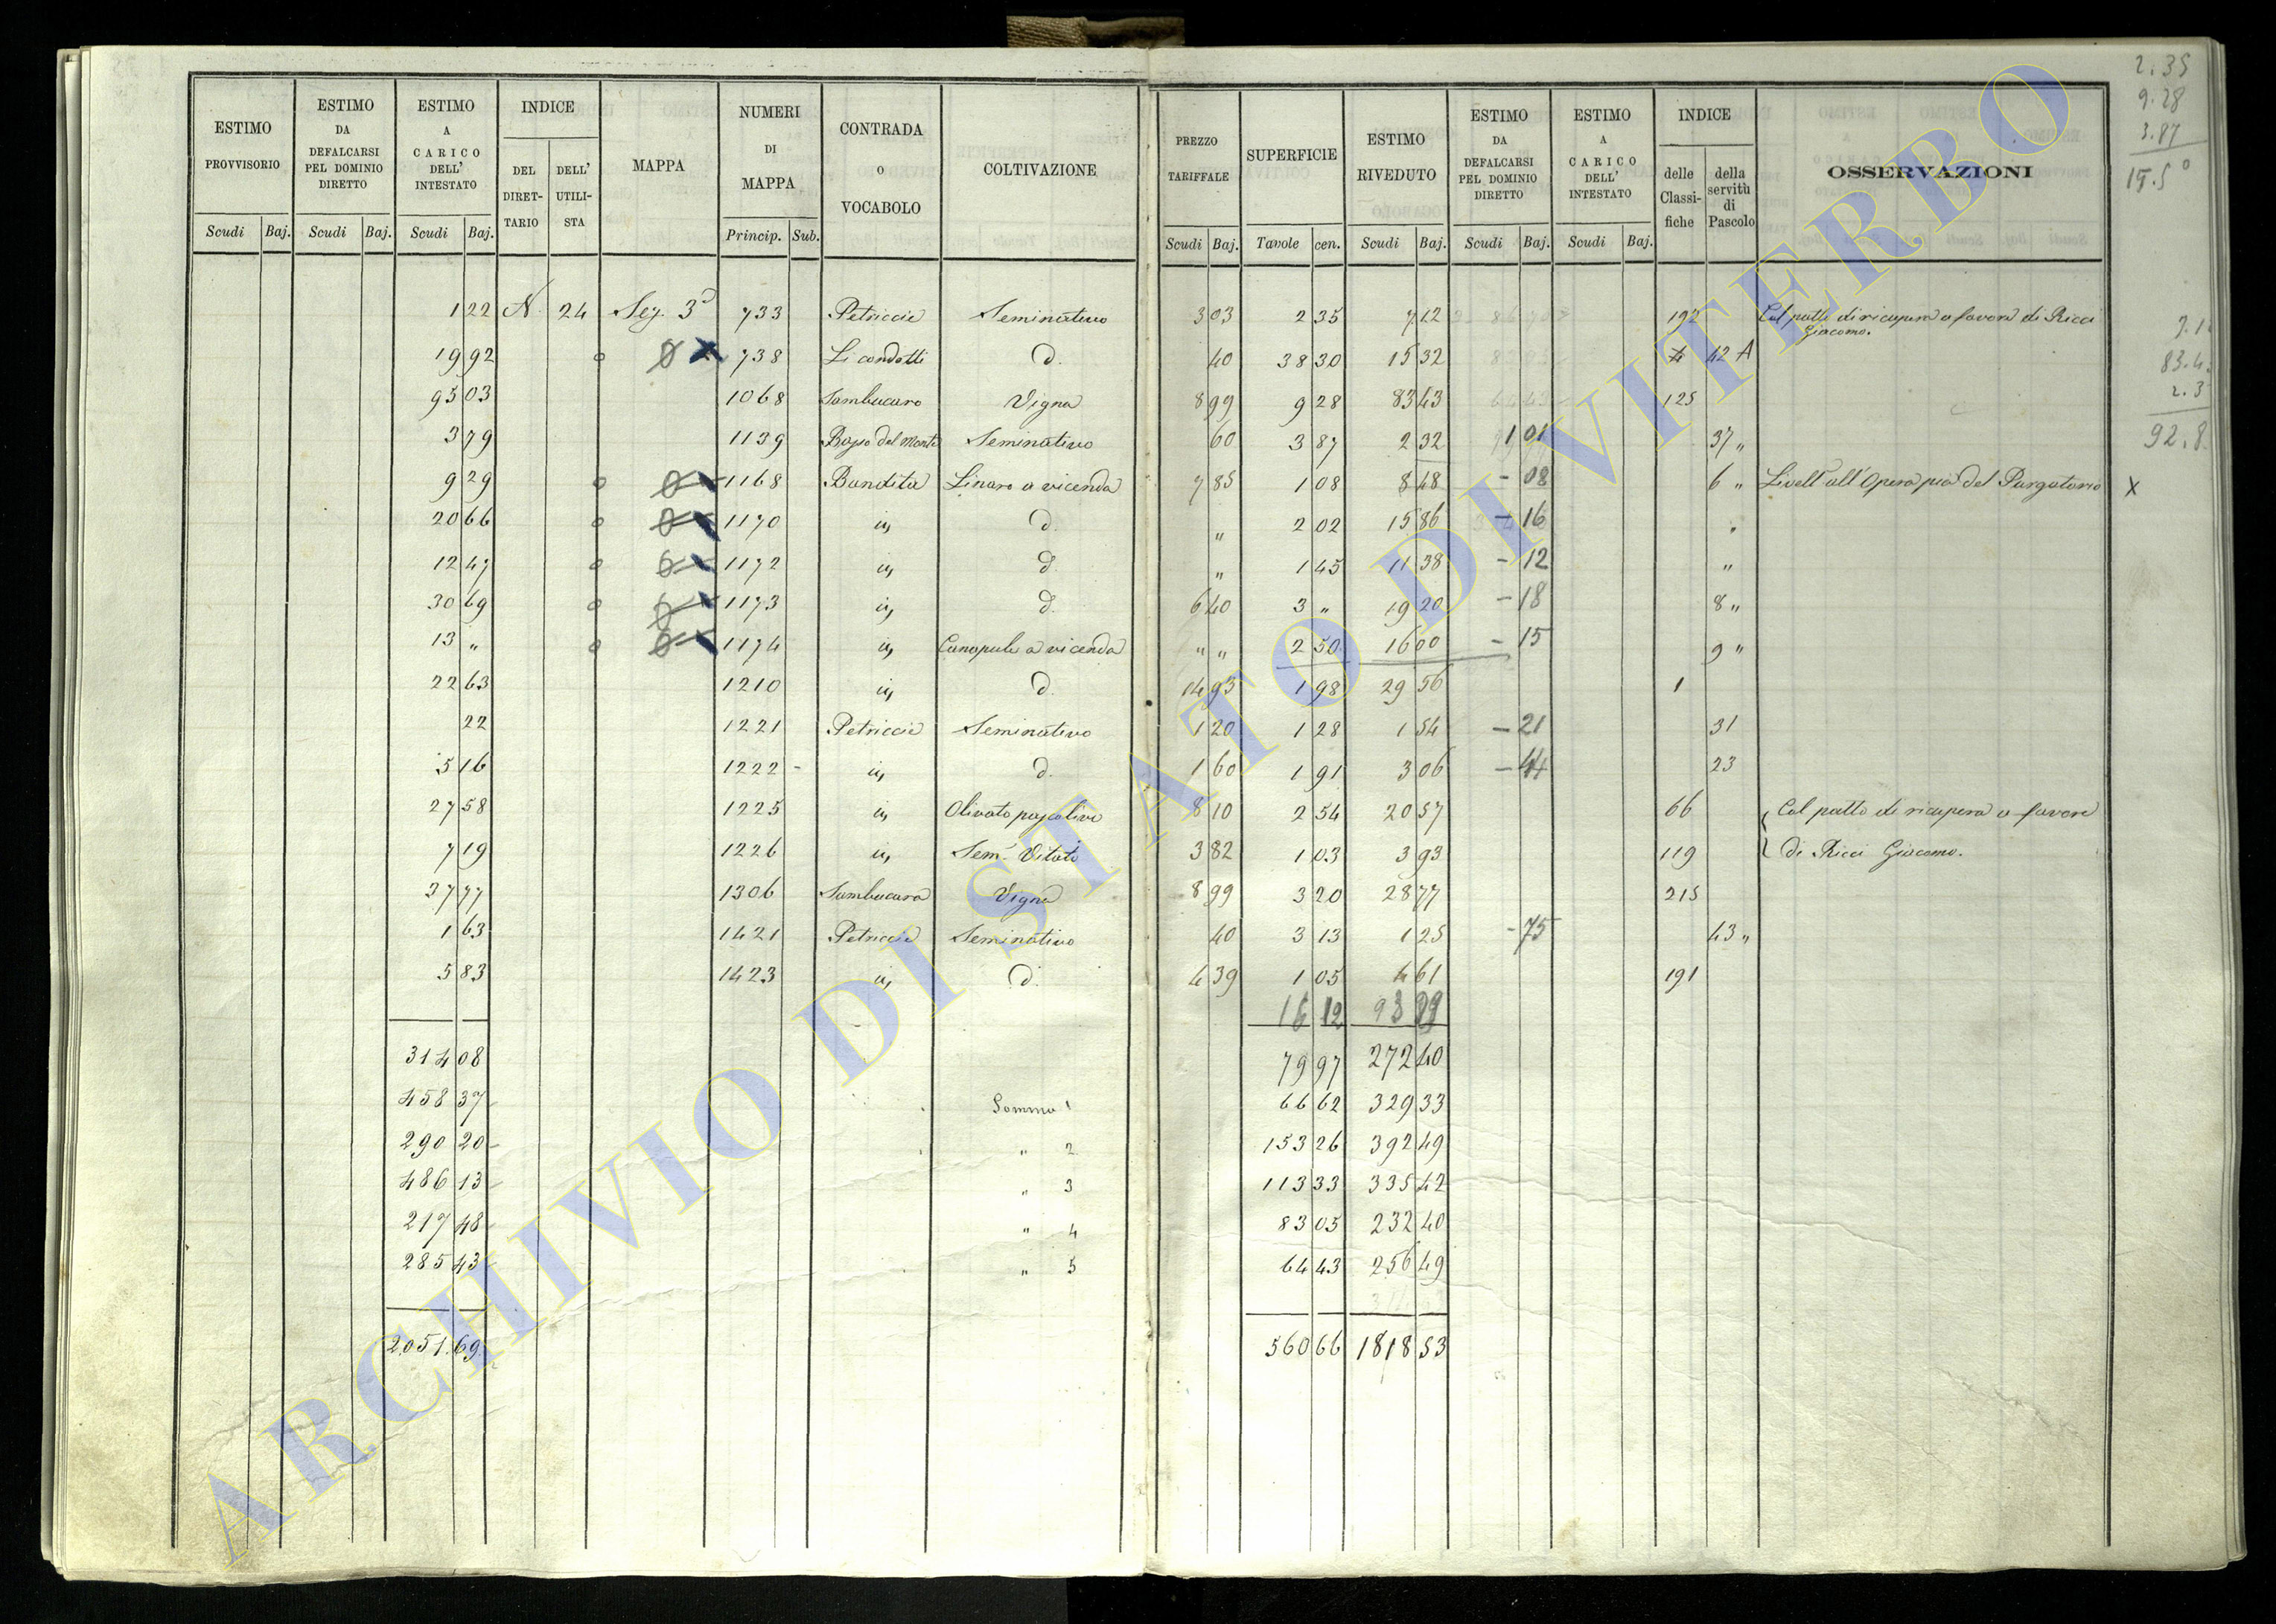 ESTIMO PROVVISORIO | ESTIMO DA DEFALCARSI PEL DOMINIO DIRETTO | ESTIMO A CARICO DELL' INTESTATO | INDICE DEL DIRETTARIO | DELL' UTILISTA | MAPPA | NUMERI DI MAPPA | CONTRADA O VOCABOLO | COLTIVAZIONE | PREZZO TARIFFALE | SUPERFICIE | ESTIMO RIVEDUTO | ESTIMO DA DEFALCARSI PEL DOMINIO DIRETTO | ESTIMO A CARICO DELL' INTESTATO | INDICE delle Classifiche | della servitù di Pascolo | OSSERVAZIONI
Scudi Baj. Scudi Baj. Scudi Baj. Princip. Sub. Scudi Baj. Tavole cen. Scudi Baj. Scudi Baj. Scudi Baj.
1 22 N. 24 Sez. 3ª 733 Petriccie Seminativo 3 03 2 35 7 12 192 Col patto di ricupera a favore di Ricci Giacomo.
19 92 738 Li condotti d. 40 38 30 15 32 4 42 A
95 03 1068 Sambucaro Vigna 8 99 9 28 83 43 125
3 79 1139 del Monte Seminativo 60 3 87 2 32 1 01 37 "
9 29 1168 Bandita Linaro a vicenda 7 85 1 08 8 48 - 08 6 " Livell. all'Opera pia del Purgatorio x
20 66 1170 d. " 2 02 15 86 - 16 "
12 47 1172 d. " 1 45 11 38 - 12 "
30 69 1173 d. 6 40 3 " 19 20 - 18 8 "
13 " 1174 Canapule a vicenda " " 2 50 16 00 - 15 9 "
22 63 1210 d. 14 93 1 98 29 56 1
22 1221 Petriccie Seminativo 1 20 1 28 1 54 - 21 31
5 16 1222 - d. 1 60 1 91 3 06 - 44 23
27 58 1225 Olivato pascolivo 8 10 2 54 20 57 66 Col patto di ricupera a favore
7 19 1226 Sem. Vitato 3 82 1 03 3 93 119 di Ricci Giacomo.
37 77 1306 Sambucara Vigna 8 99 3 20 28 77 215
1 63 1421 Petriccie Seminativo 40 3 13 1 25 - 75 43 "
5 83 1423 d. 4 39 1 05 4 61 191
314 08 79 97 272 40
458 37 Somma 1 66 62 329 33
290 20 " 2 153 26 392 49
486 13 " 3 113 33 335 42
217 48 " 4 83 05 232 40
285 43 " 5 64 43 256 49
2051.69 560 66 1818 53
2.35
9.28
3.87
15.50
ARCHIVIO DI STATO DI VITERBO